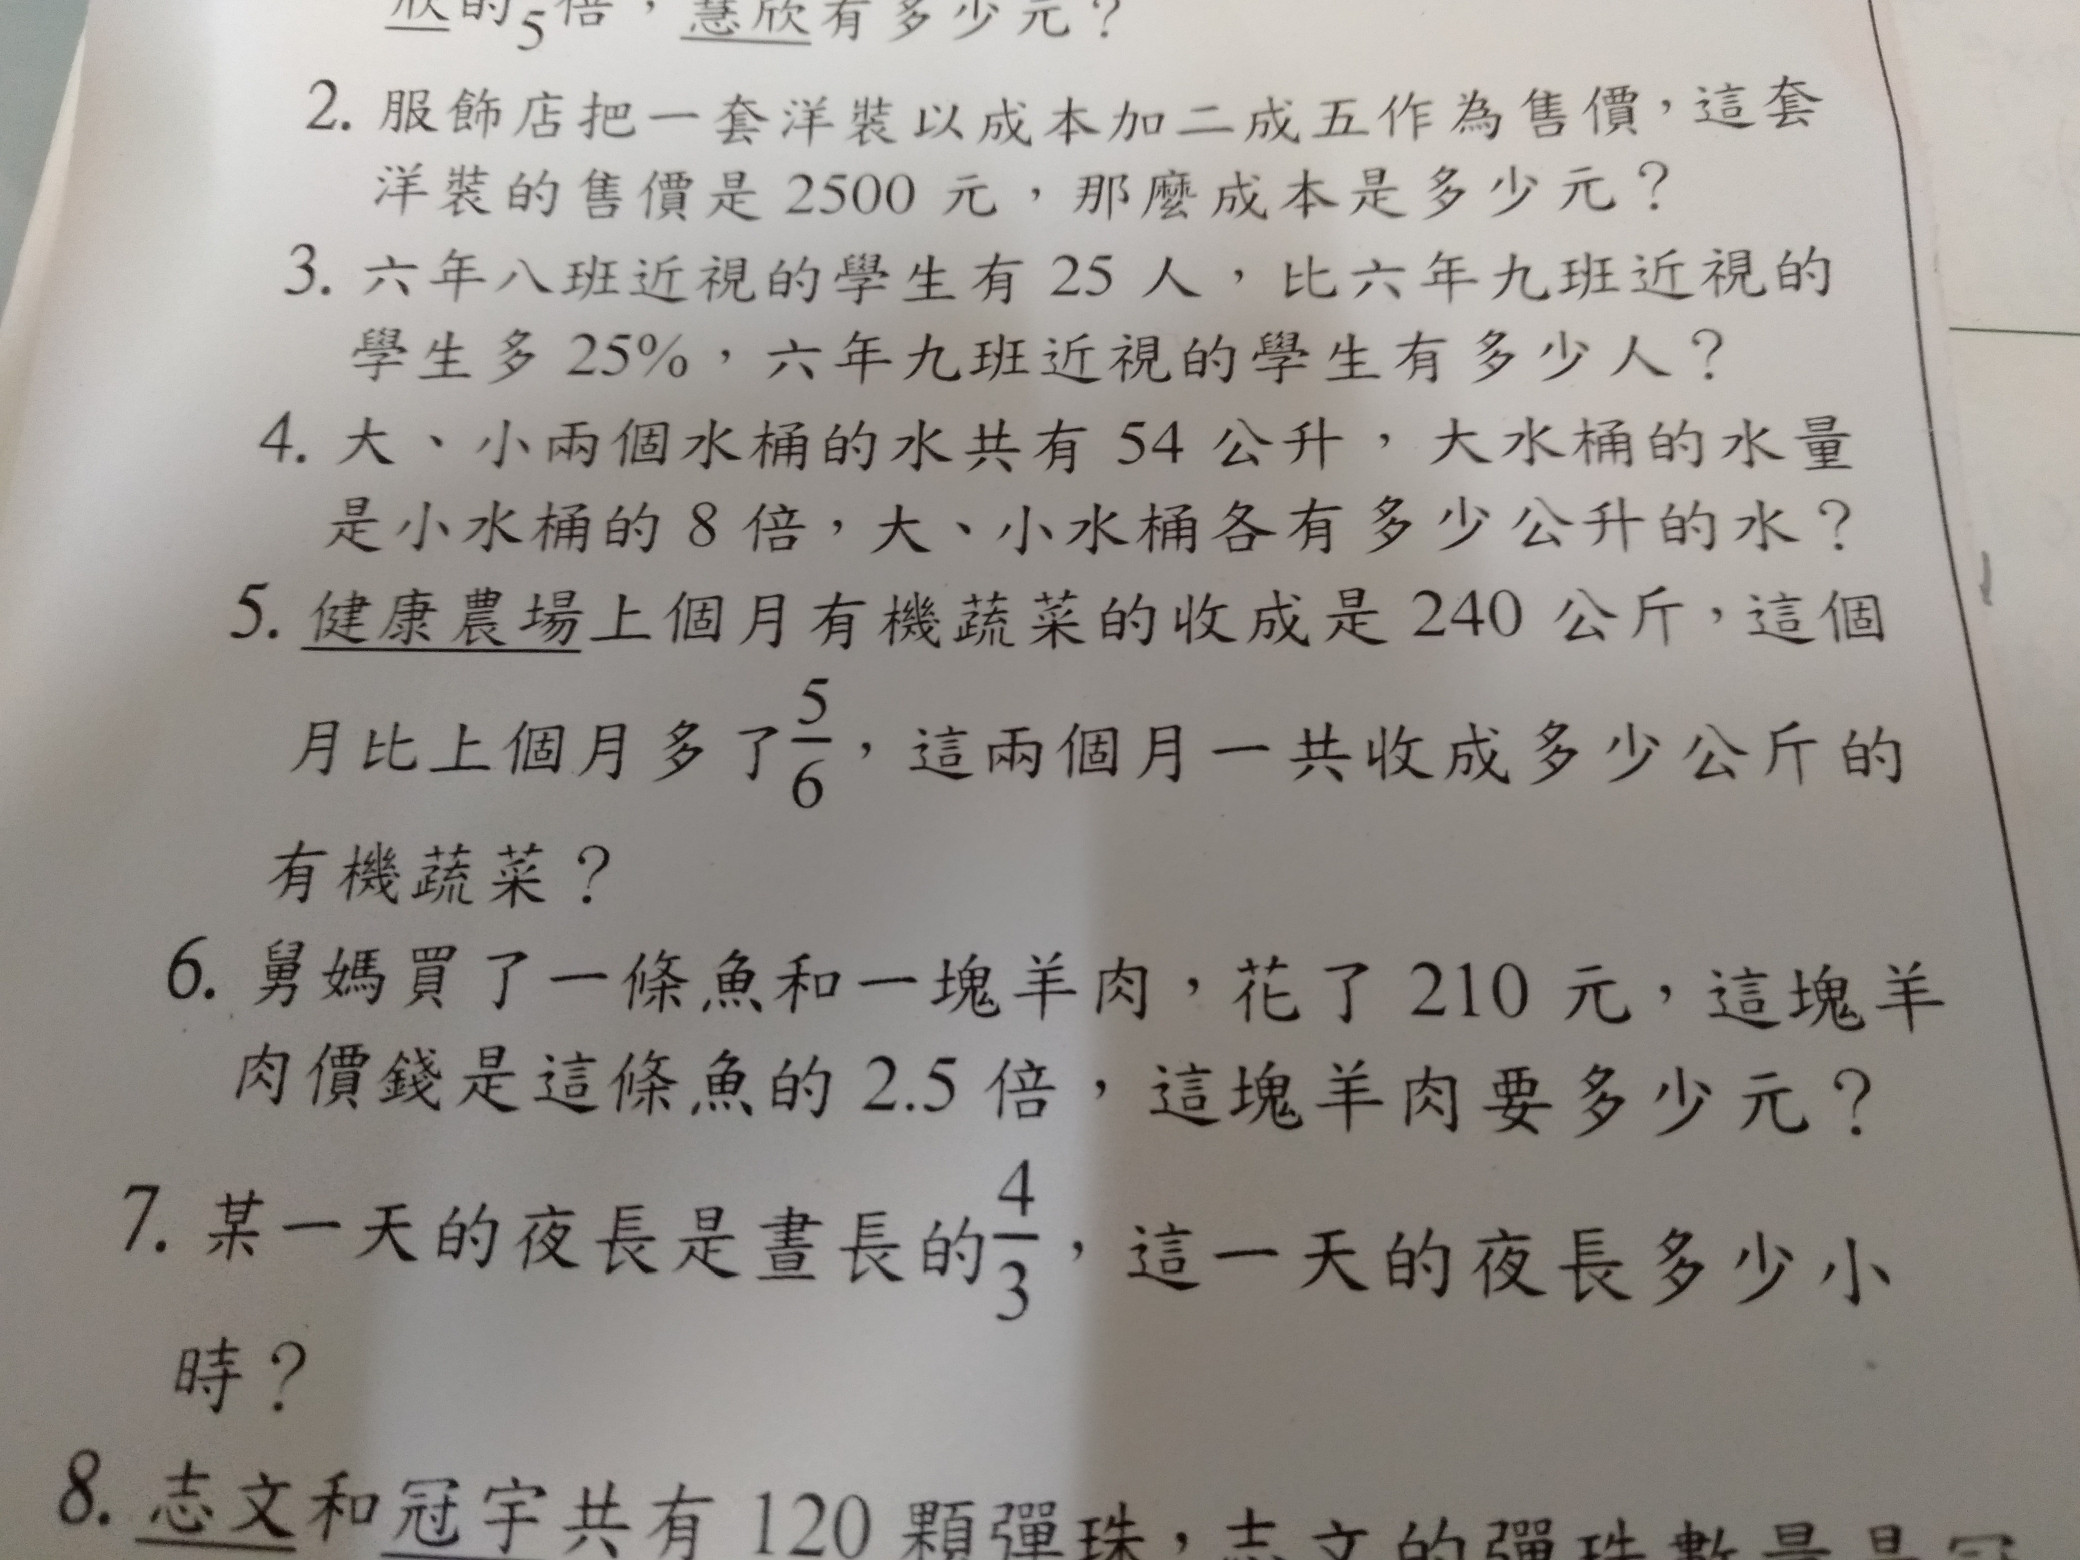 欣的 5 倍，慧欣有多少元？
2. 服飾店把一套洋裝以成本加二成五作為售價，這套
洋裝的售價是 2500 元，那麼成本是多少元？
3. 六年八班近視的學生有 25 人，比六年九班近視的
學生多 25%，六年九班近視的學生有多少人？
4. 大、小兩個水桶的水共有 54 公升，大水桶的水量
是小水桶的 8 倍，大、小水桶各有多少公升的水？
5. 健康農場上個月有機蔬菜的收成是 240 公斤，這個
月比上個月多了5/6，這兩個月一共收成多少公斤的
有機蔬菜？
6. 舅媽買了一條魚和一塊羊肉，花了 210 元，這塊羊
肉價錢是這條魚的 2.5 倍，這塊羊肉要多少元？
7. 某一天的夜長是晝長的4/3，這一天的夜長多少小
時？
8. 志文和冠宇共有 120 顆彈珠，志文的彈珠數量是冠